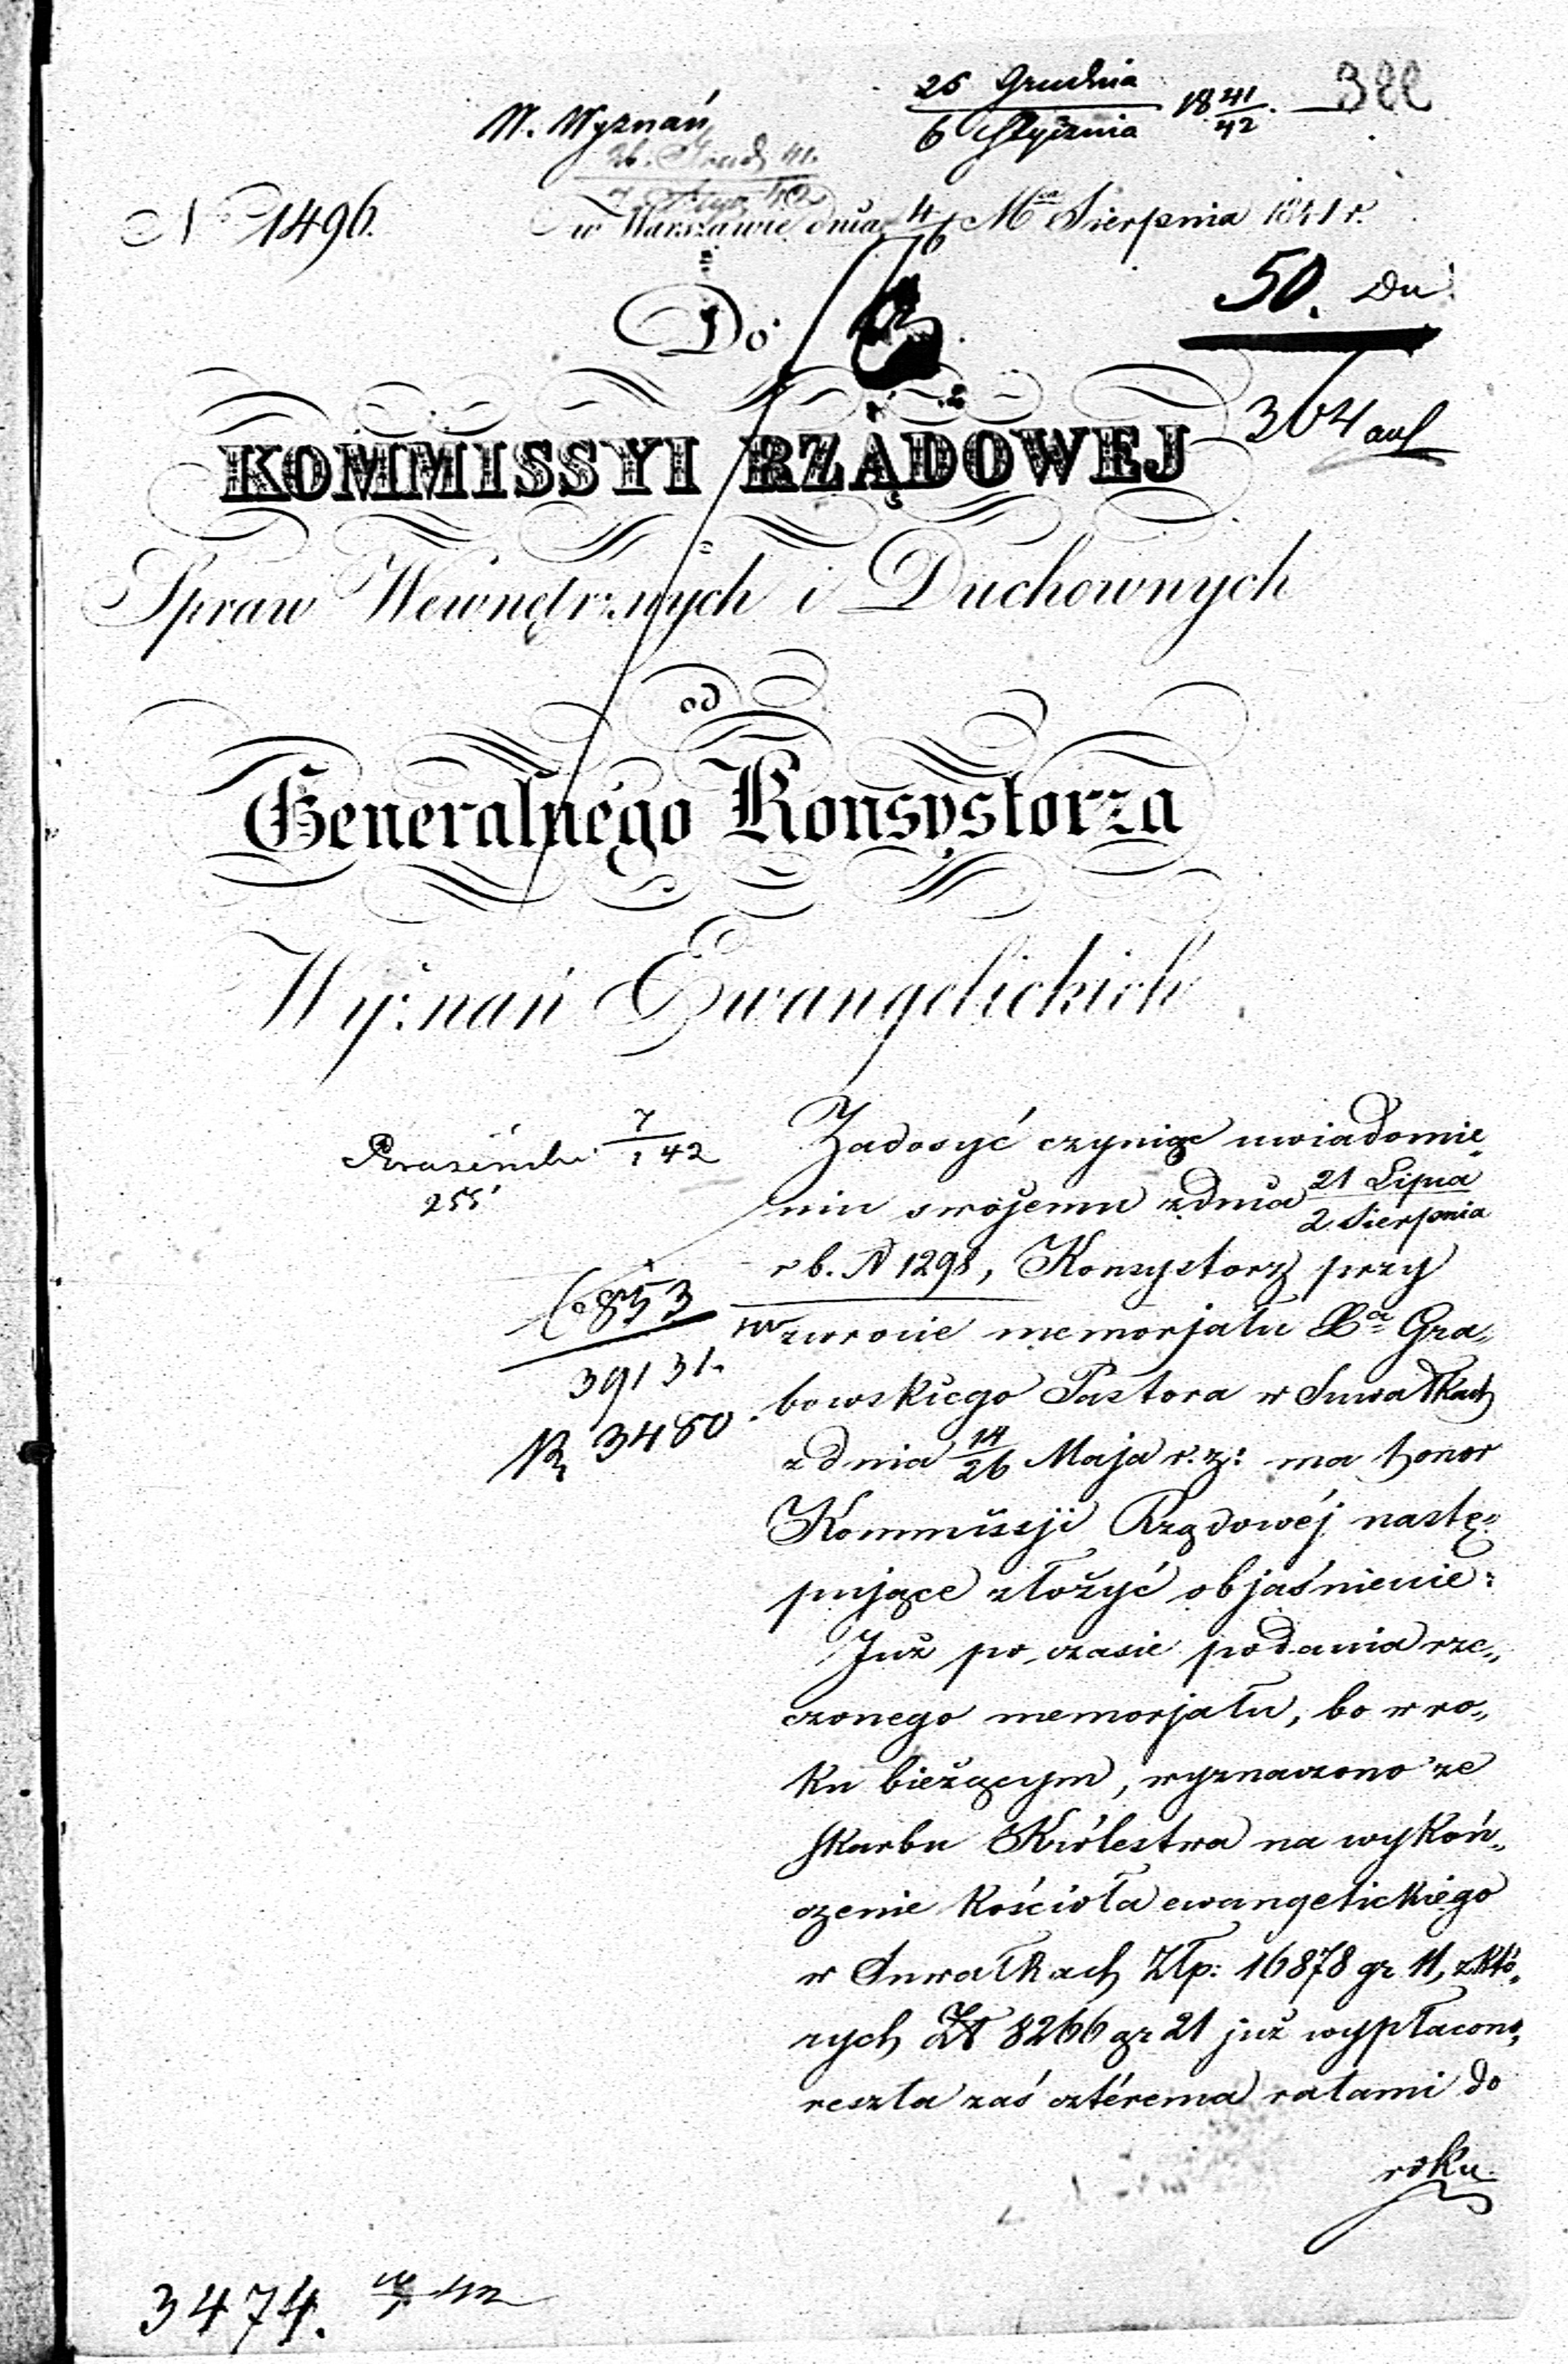 25 Grudnia
6 Stycznia 18 41/42. 322
W. Wyznań
26. Grud 41.
7. Stycz 42
No 1496.
w Warszawie dnia 4/16 Mca Sierpnia 1841 r.
50. Du
Do
364 aus
KOMMISSYI RZĄDOWEJ
Spraw Wewnętrznych i Duchownych
od
Generalnego Konsystorza
Wyznań Ewangelickich
7/1 42
255
6853
39131.
3480.
Zadosyć czyniąc uwiadomie„
niu swojemu z dnia 21 Lipca
2 Sierpnia
r b. N 1298, Konsystorz przy
zwrocie memorjału Xa Gra„
bowskiego Pastora w Suwałkach
z dnia 14/26 Maja r. z: ma honor
Kommissji Rządowéj nastę„
pujące złożyć objaśnienie:
Już po czasie podania rze„
czonego memorjału, bo w ro„
ku bieżącym, wyznaczono ze
skarbu Królestwa na wykoń„
czenie kościoła ewangelickiego
w Suwałkach Złp: 16878 gr 11, z któ„
rych Zł 8266 gr 21 już wypłacono,
reszta zaś cztérema ratami do
roku
3474. 42